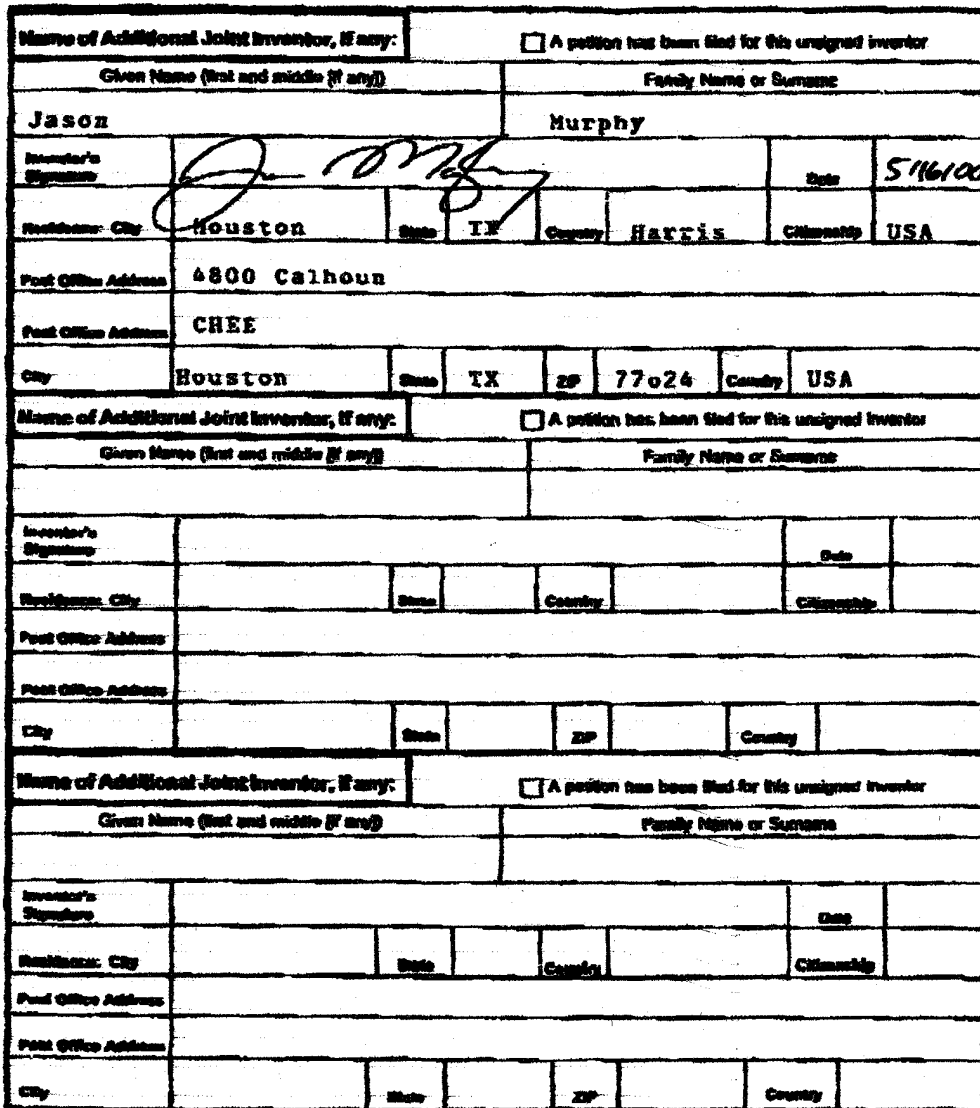 Name of Additional Joint Inventor, if any: A petition has been filed for this unsigned inventor
Given Name (first and middle [if any]) Family Name or Surname
Jason Murphy
Inventor's
Signature Date 5/16/00
Residence: City Houston State TX Country Harris Citizenship USA
Post Office Address 4800 Calhoun
Post Office Address CHEE
City Houston State TX ZIP 77o24 Country USA
Name of Additional Joint Inventor, if any: A petition has been filed for this unsigned inventor
Given Name (first and middle [if any]) Family Name or Surname
Inventor's
Signature Date
Residence: City State Country Citizenship
Post Office Address
Post Office Address
City State ZIP Country
Name of Additional Joint Inventor, if any: A petition has been filed for this unsigned inventor
Given Name (first and middle [if any]) Family Name or Surname
Inventor's
Signature Date
Residence: City State Country Citizenship
Post Office Address
Post Office Address
City State ZIP Country